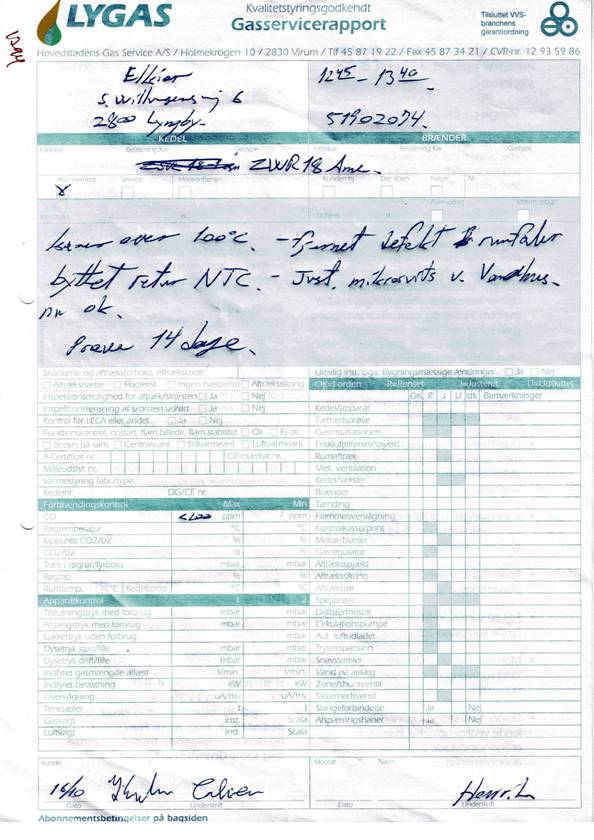 LYGAS
Kvalitetstyringsgodkendt
Gasservicerapport
Tilsluttet VVS-
branchens
garantiordning
Hovedstadens Gas Service A/S / Holmekrogen 10 / 2830 Virum / Tlf 45 87 19 22 / Fax 45 87 34 21 / CVR-nr. 12 93 59 86
12 45 - 13 40
6
2800 Lyngby
51902074.
KEDEL BRÆNDER
Fabrikat Gastype Fabrikat Gastype
ZWR 18
Abonnement Service Hovedeftersyn Kunden hj. Der åben Nøgle Nr.
x
over 100°C. - fjernet defekt rumføler
byttet retur NTC. - Just. v.
nu ok.
Prøve 14 dage.
Skorstens- og aftræksforhold. Aftrækskode
Ulovlig inst. pga. bygningsmæssige ændringer Ja Nej
Aftrækshætte Flugienst Aftrækssikring
OK=I orden R=Renset J=Justeret U=Udskiftet
Inspektionsmulighed for aftræk/skorsten Ja Nej
OK R J U stk. Bemærkninger
Inspektion/rensning af skorsten udført Ja Nej
Kedel/apparat
Kontrol for LECA eller andet Ja Nej
Tæthedsprøve
Funktionskontrol, opstart, flam.billede, flam.stabilitet Ok Ej ok
Gasinstallationen
Br.ovn på sam. Centralv.anl. Solvarmeanl. Luftvarmeanl.
Friskluftstilførsel/spjæld
A-Certifikat nr. GR-mærkat nr.
Rumaftræk
Måleudstyr nr.
Mek. ventilation
Varmestyring fabr./type
Kedel/veksler
Kedelnr. DG/CE nr.
Brænder
Forbrændingskontrol Max Min
Tænding
CO ppm ppm
Flammeovervågning
Røgtemperatur °C °C
Kontrolkasse/print
Kippunkt CO2/02 % %
Motor/blæser
CO2/02 % %
Gasregulator
Træk i røgrør/fyrboks mbar mbar
Aftræksspjæld
Røgtab % %
Aftrækssikring
Rumtemp. °C Kedeltemp. °C °C
Aftræksrør
Apparatkontrol 1 2
Spejlprøve
Tilslutningstryk med forbrug mbar mbar
Driftstermostat
Afgangstryk med forbrug mbar mbar
Cirkulationspumpe
Lukketryk uden forbrug mbar mbar
Aut. luftudlader
Dysetryk start/lille mbar mbar
Trykekspansion
Dysetryk drift/lille mbar mbar
Snavssamler
Indfyret gasmængde aflæst l/min l/min
Vand på anlæg
Indfyret belastning kW kW
Zone/shuntventil
Overvågning uA/mv uA/mv
Sikkerhedsventil
Timetæller t t
Slangeforbindelse Ja Nej
Gasvalgt inst. Scala
Afspærringshaner Ja Nej
Luftvalgt inst. Scala
Kunde Montør Navn
16/10
Dato Underskrift Dato Underskrift
Abonnementsbetingelser på bagsiden